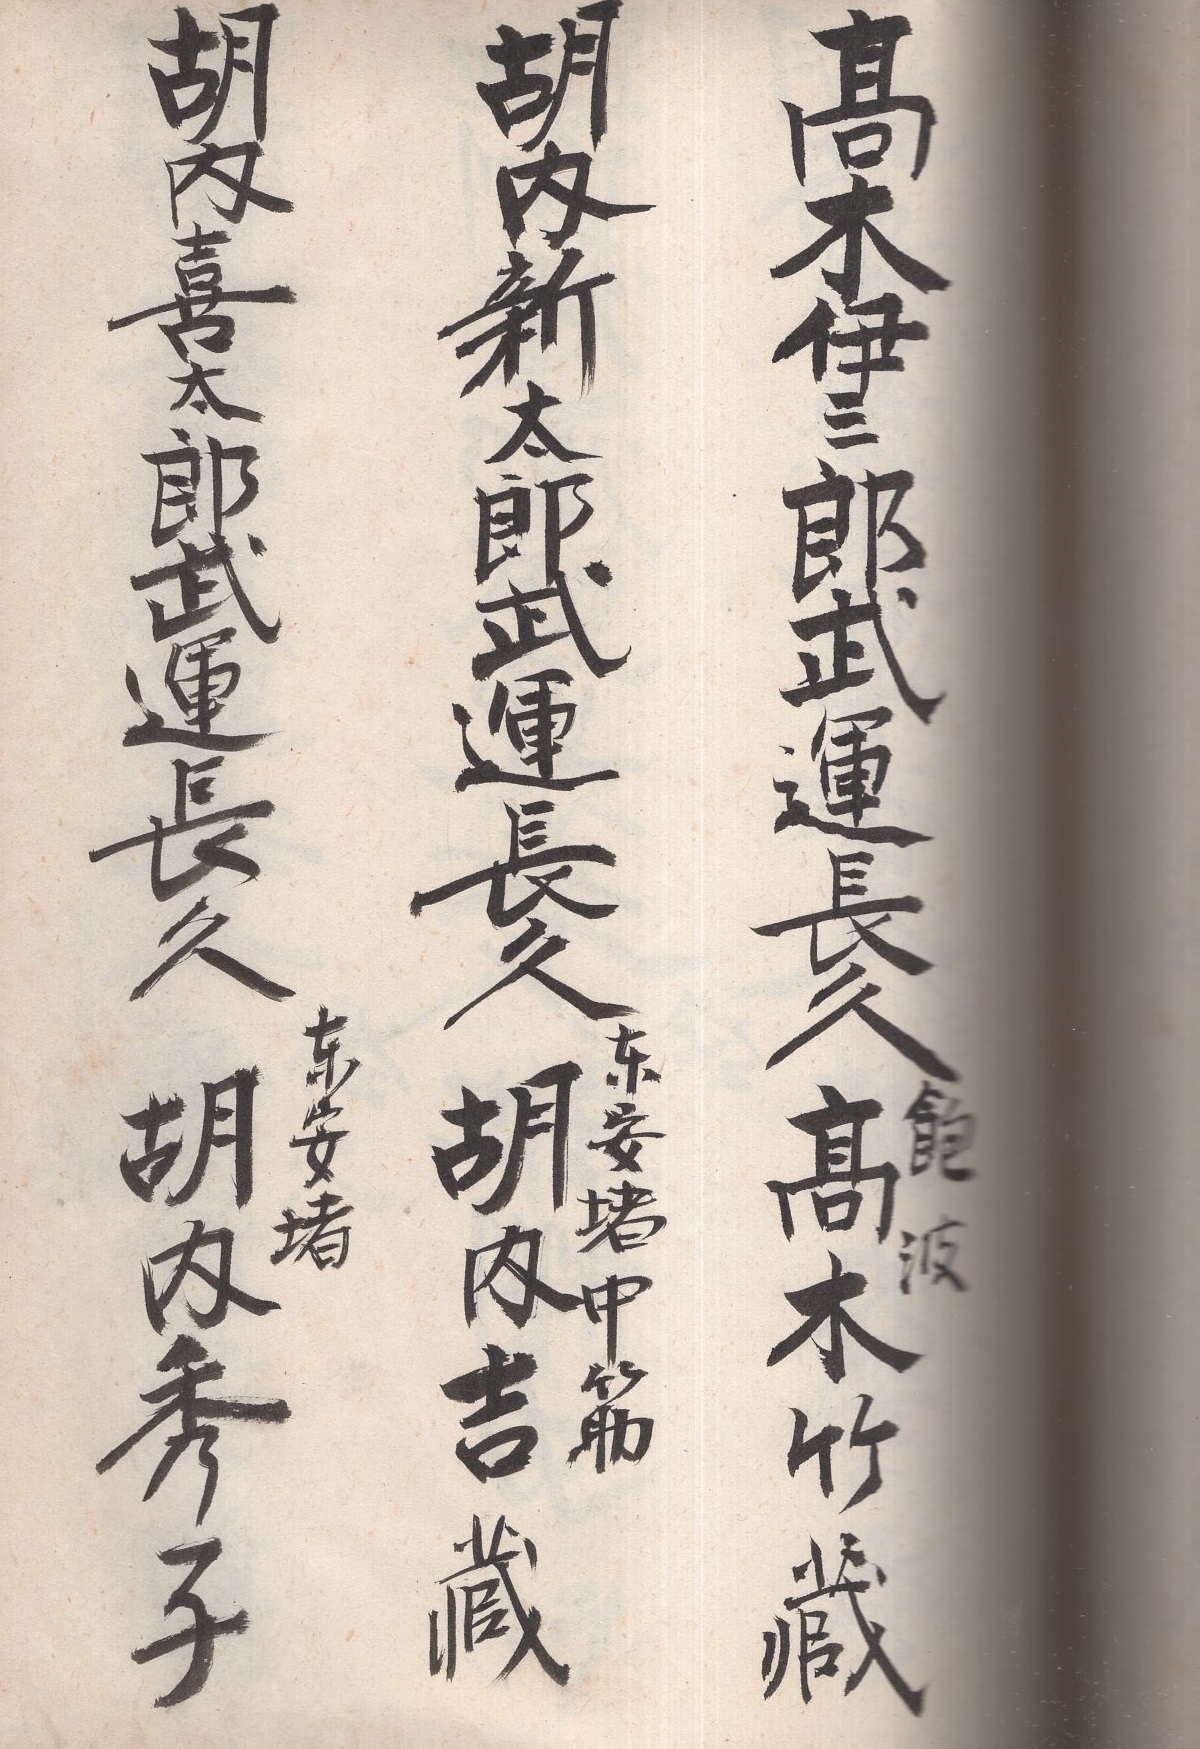 髙木伊三郎武運長久
飽波
髙木竹藏
胡内新太郎武運長久
东安堵中筋
胡内吉藏
胡内喜太郎武運長久
东安堵
胡内秀子